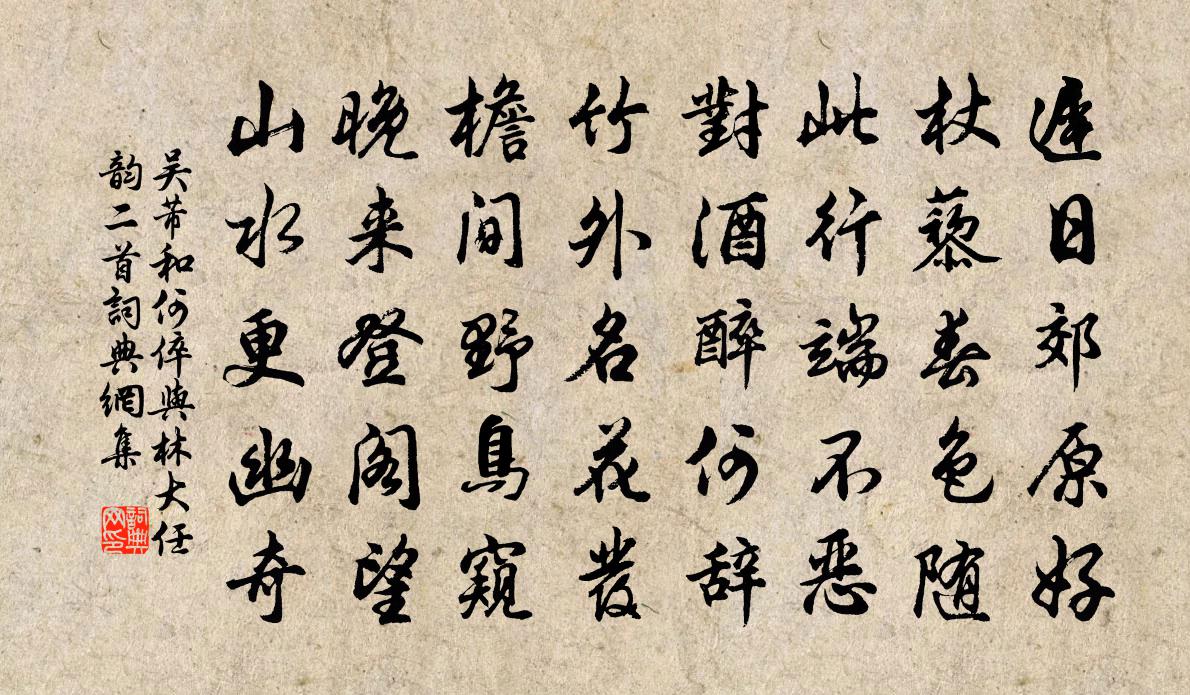 遲日郊原好
杖藜春色随
此行端不恶
對酒醉何辞
竹外名花發
檐间野鳥窺
晚来登阁望
山水更幽奇
吴芾和何倅與林大任
韵二首詞典網集
詞典网印